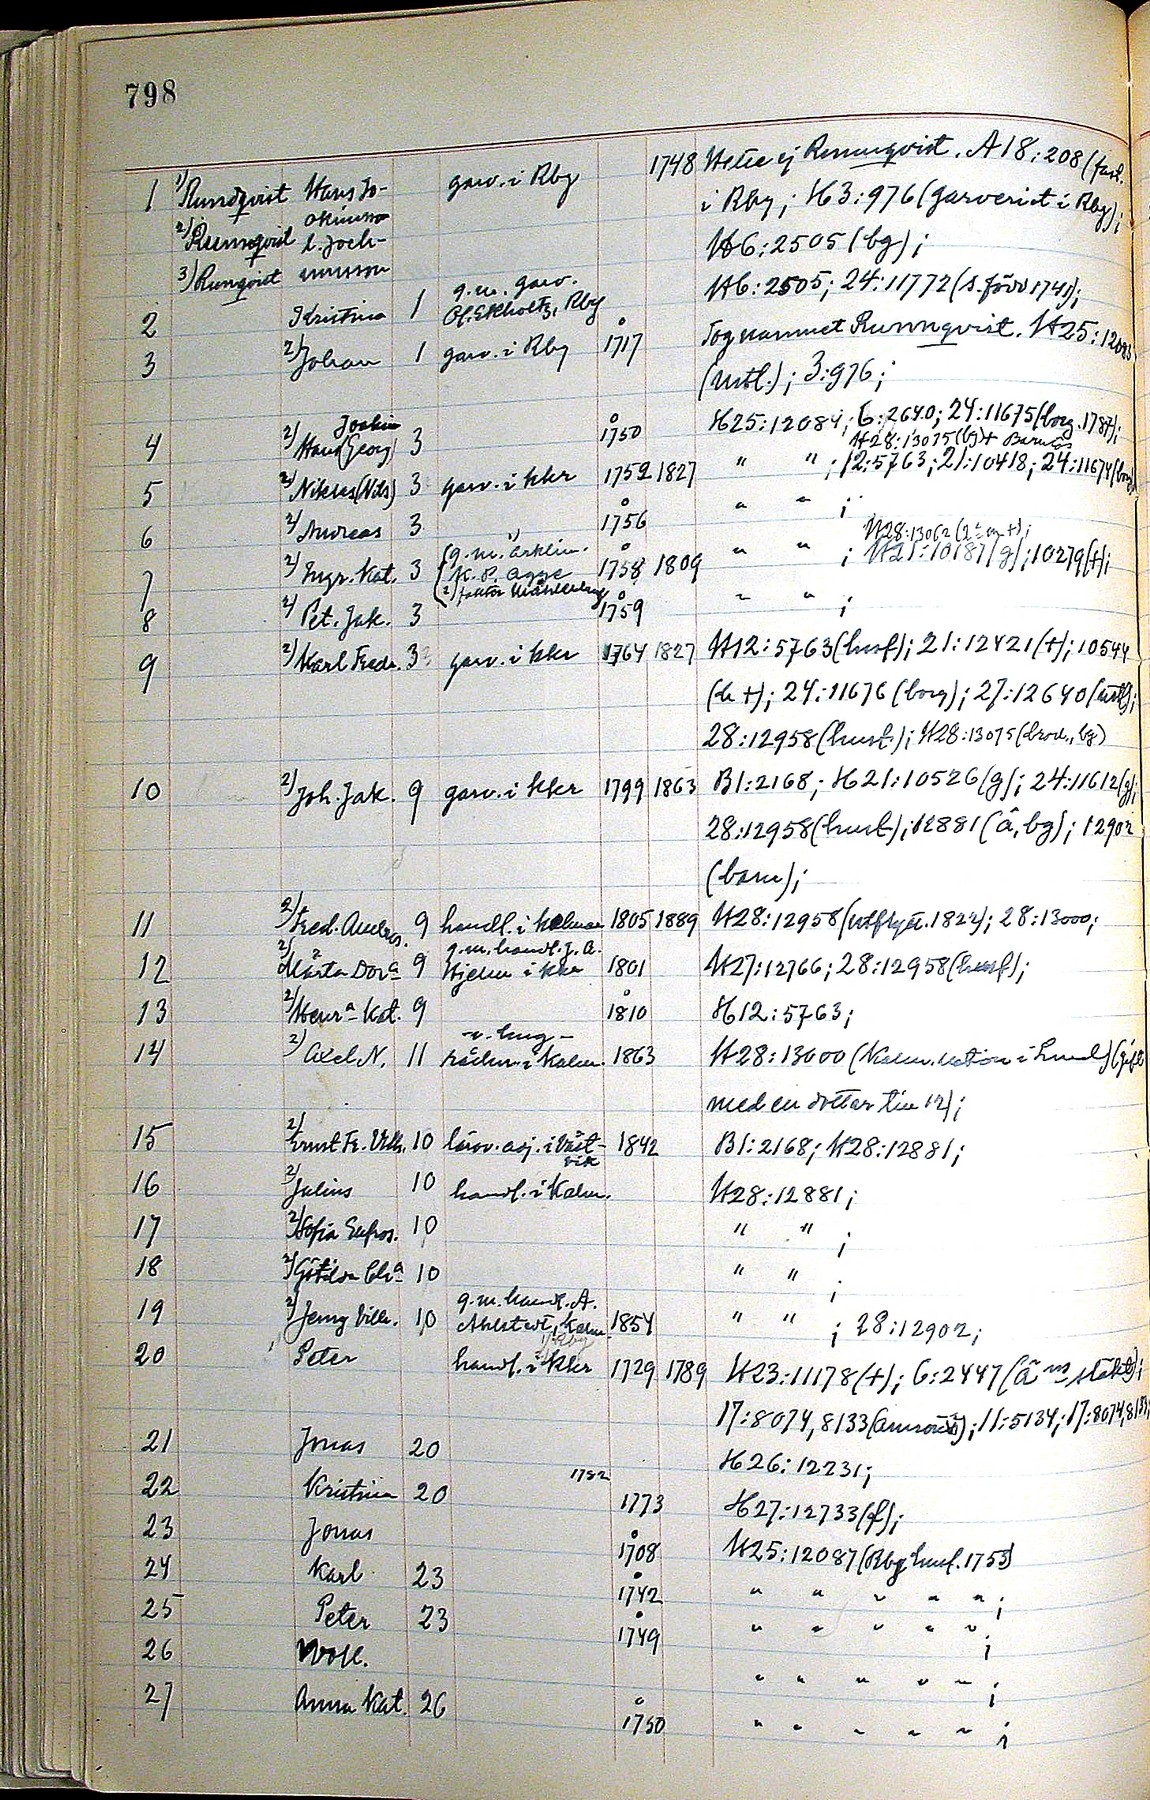 798
1 1) Rundqvist Hans Jo- garv. i Rby 1748 Hette ej Runnqvist. A18:208 (fast.
2) Runnqvist l. Joch- i Rby; H3:976 (garveriet i Rby);
3) Runqvist H6:2505 (bg);
2 Kristina 1 g.m. garv. Ol. Ekholtz, Rby H6:2505; 24:11772 (s. född 1741);
3 2) Johan 1 garv. i Rby 1717 Tog namnet Runnqvist. H25:12083
(mtl.); 3:976;
4 2) Joakim Hans (Georg) 3 1750 H25:12084; 6:2640; 24:11675 (borg. 1787);
H28:13075 (bg)
5 2) Niklas (Nils) 3 garv. i kkr 1752 1827 " " ; 12:5763; 21:10418; 24:11674
6 2) Andreas 3 1756 " " ;
7 2) Ingr. Kat. 3 1) g.m. 1758 1809 " " ; H21:10187 (g); 10279 (+);
8 2) Pet. Jak. 3 1759 " " ;
9 2) Karl Fredr. 3 garv. i kkr 1764 1827 H12:5763 (husf); 21:12421 (+); 10544
(h +); 24:11676 (borg); 27:12640 (mtl);
28:12958 (husf.); H28:13075 (brod., bg)
10 2) Joh. Jak. 9 garv. i kkr 1799 1863 B1:2168; H21:10526 (g); 24:11612 (g);
28:12958 (husf.); 12881 (å, bg); 12902
(barn);
11 2) Fred. 9 handl. i Kalmar 1805 1889 H28:12958 (utflytt. 1822); 28:13000;
12 2) Märta Dora 9 g.m. handl. J. A. Hjelm i kkr 1801 H27:12766; 28:12958 (husf);
13 2) Henra Kat. 9 1810 H12:5763;
14 2) Axel N. 11 v. häg- rådm. i Kalm. 1863 H28:13000 (Kalm. nation i Lund) (gift
med en dotter till 12);
15 2) Ernst Fr. Vilh. 10 lärov. adj. i Väst- vik 1842 B1:2168; H28:12881;
16 2) Julius 10 handl. i Kalm. H28:12881;
17 2) Sofia Eufros. 10 " " ;
18 2) 10 " " ;
19 2) Jenny Vilh. 10 g.m. handl. A. Ahlstedt, Kalm. 1854 " " ; 28:12902;
20 Peter handl. i kkr 1729 1789 H23:11178 (+); 6:2447
17:8074, 8133; 11:5134; 17:8074, 8133;
21 Jonas 20 H26:12231;
22 Kristina 20 1752 1773 H27:12733 (f);
23 Jonas 1708 H25:12087 (Rby husf. 1753)
24 Karl 23 1742 " " " " " ;
25 Peter 23 1749 " " " " " ;
26 Woll. " " " " " ;
27 Anna Kat. 26 1750 " " " " " ;